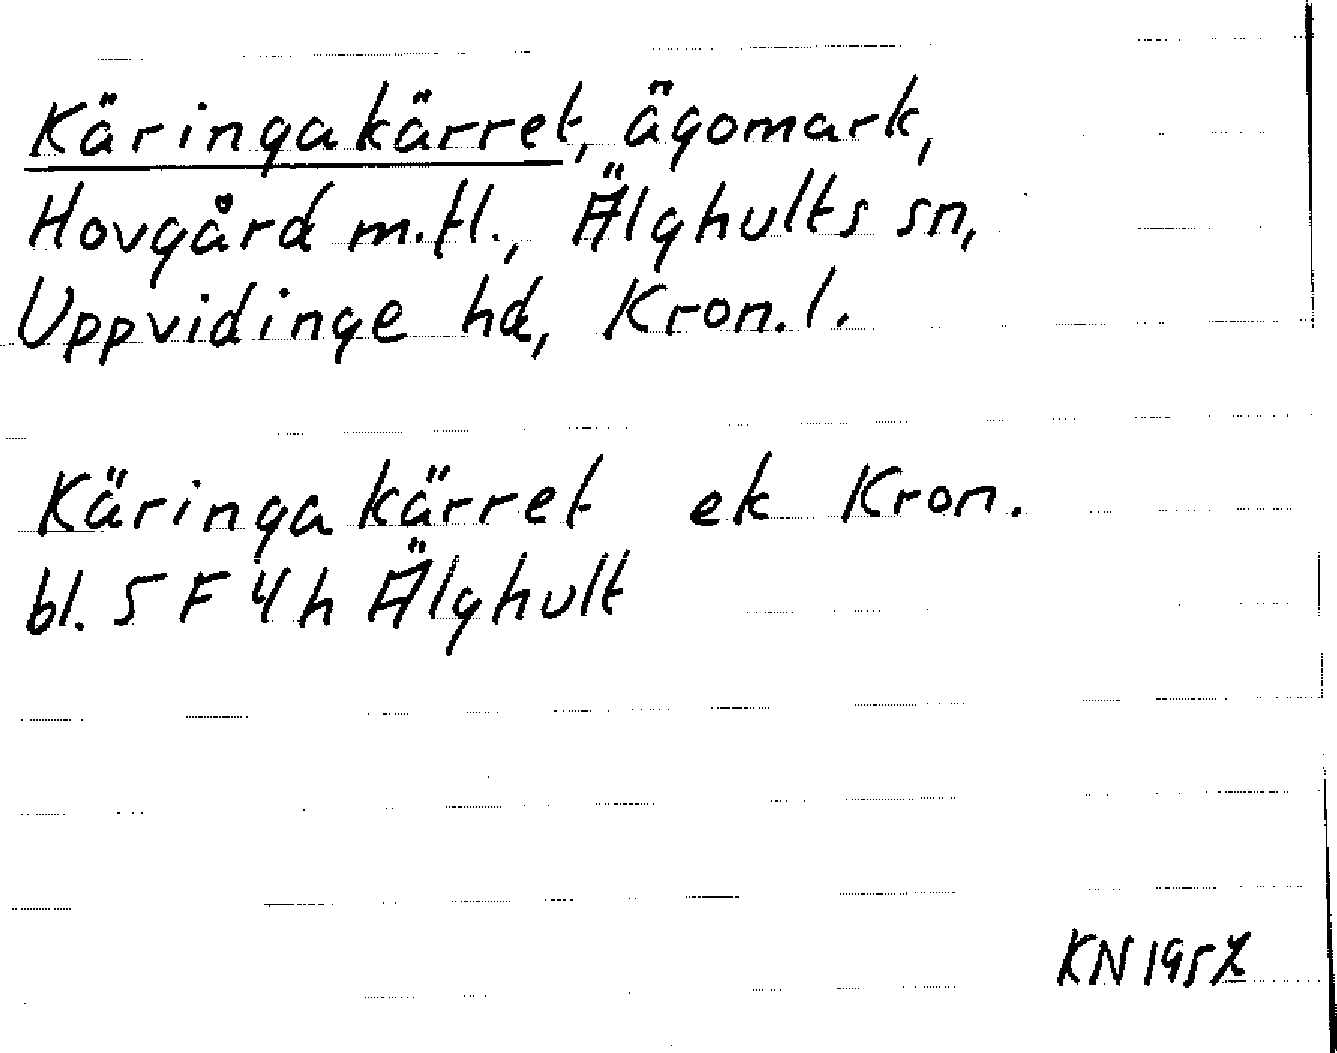 Käringakärret, ägomark,
Hovgård m.fl., Älghults sn,
Uppvidinge hd, Kron.l.
Käringakärret ek Kron.
bl. 5 F 4 h Älghult
KN